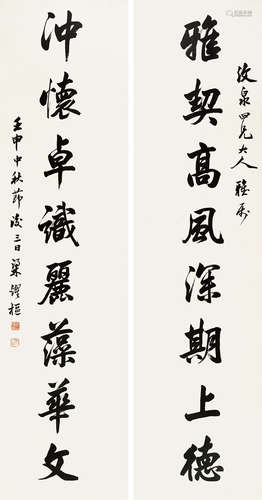 紋泉四兄大人雅屬
雅契高風深期上德
沖懷卓識麗藻華文
壬申中秋節後三日梁耀樞